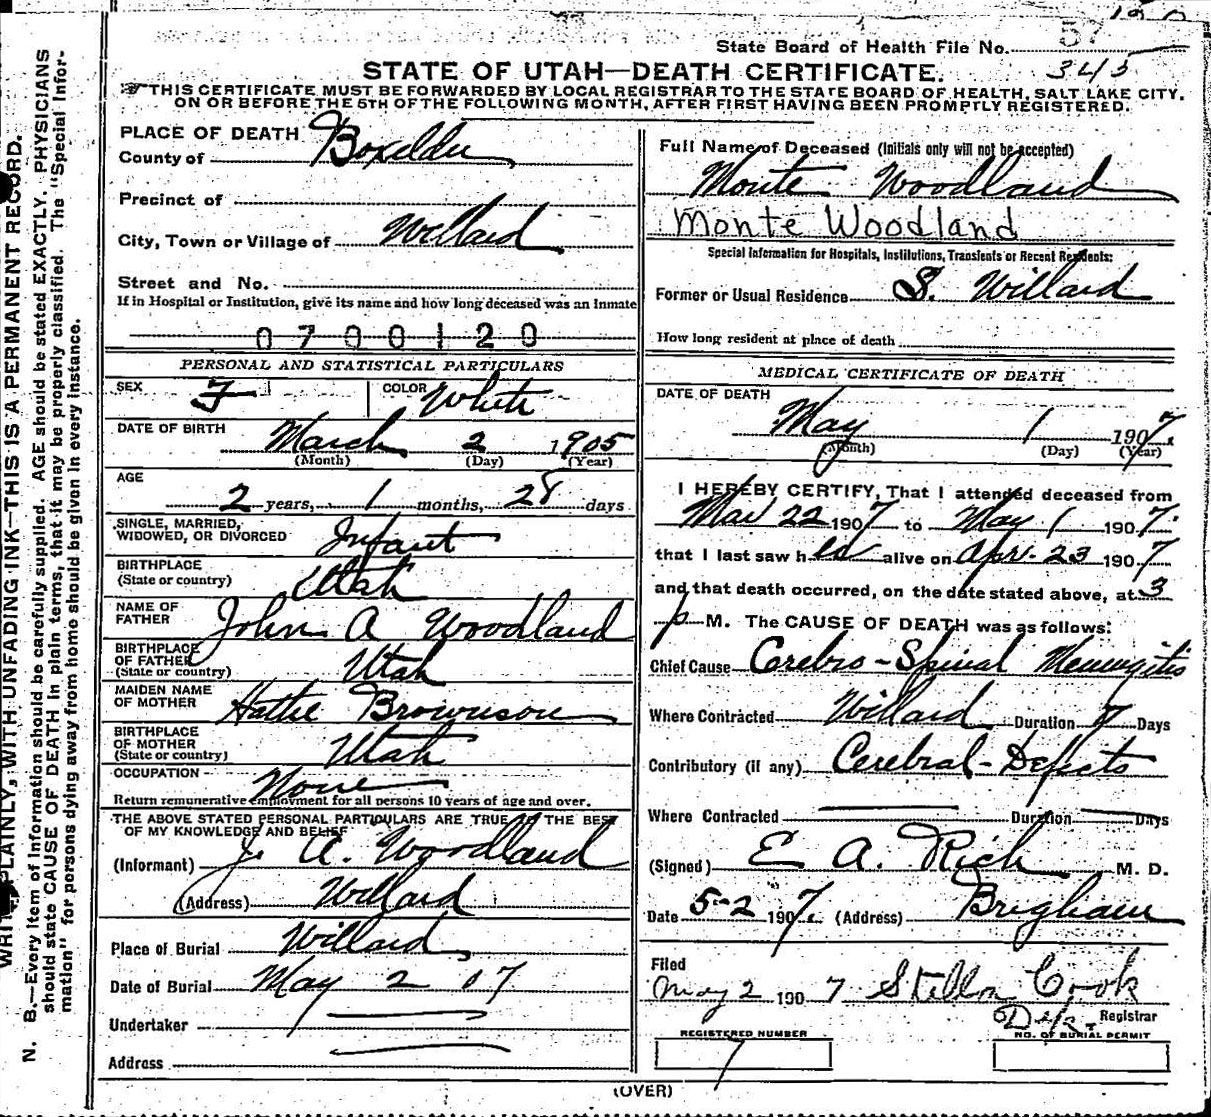 State Board of Health File No. 57
345
STATE OF UTAH—DEATH CERTIFICATE.
THIS CERTIFICATE MUST BE FORWARDED BY LOCAL REGISTRAR TO THE STATE BOARD OF HEALTH, SALT LAKE CITY,
ON OR BEFORE THE 5TH OF THE FOLLOWING MONTH, AFTER FIRST HAVING BEEN PROMPTLY REGISTERED.
PLACE OF DEATH
County of Boxelder
Precinct of
City, Town or Village of Willard
Street and No.
If in Hospital or Institution, give its name and how long deceased was an Inmate
0700120
PERSONAL AND STATISTICAL PARTICULARS
SEX F COLOR White
DATE OF BIRTH March 2 1905
(Month) (Day) (Year)
AGE
2 years, 1 months, 28 days
SINGLE, MARRIED,
WIDOWED, OR DIVORCED Infant
BIRTHPLACE
(State or country) Utah
NAME OF
FATHER John A Woodland
BIRTHPLACE
OF FATHER
(State or country) Utah
MAIDEN NAME
OF MOTHER Hattie Brownson
BIRTHPLACE
OF MOTHER
(State or country) Utah
OCCUPATION None
Return remunerative employment for all persons 10 years of age and over.
THE ABOVE STATED PERSONAL PARTICULARS ARE TRUE TO THE BEST
OF MY KNOWLEDGE AND BELIEF
(Informant) J. A. Woodland
(Address) Willard
Place of Burial Willard
Date of Burial May 2 07
Undertaker
Address
Full Name of Deceased (Initials only will not be accepted)
Monte Woodland
Monte Woodland
Special Information for Hospitals, Institutions, Transients or Recent Residents:
Former or Usual Residence S. Willard
How long resident at place of death
MEDICAL CERTIFICATE OF DEATH
DATE OF DEATH
May 1 1907.
(Month) (Day) (Year)
I HEREBY CERTIFY, That I attended deceased from
Mar 22 1907 to May 1 1907.
that I last saw her alive on Apr. 23 1907
and that death occurred, on the date stated above, at 3
p M. The CAUSE OF DEATH was as follows:
Chief Cause Cerebro-Spinal Meningitis
Where Contracted Willard Duration 7 Days
Contributory (if any) Cerebral-Defects
Where Contracted Duration Days
(Signed) E A. Rich M. D.
Date 5-2 1907. (Address) Brigham
Filed
May 2 1907 Cook
Dep. Registrar
REGISTERED NUMBER NO. OF BURIAL PERMIT
7
(OVER)
WRITE PLAINLY, WITH UNFADING INK—THIS IS A PERMANENT RECORD.
N. B.—Every item of information should be carefully supplied. AGE should be stated EXACTLY. PHYSICIANS
should state CAUSE OF DEATH in plain terms, that it may be properly classified. The "Special Infor-
mation" for persons dying away from home should be given in every instance.